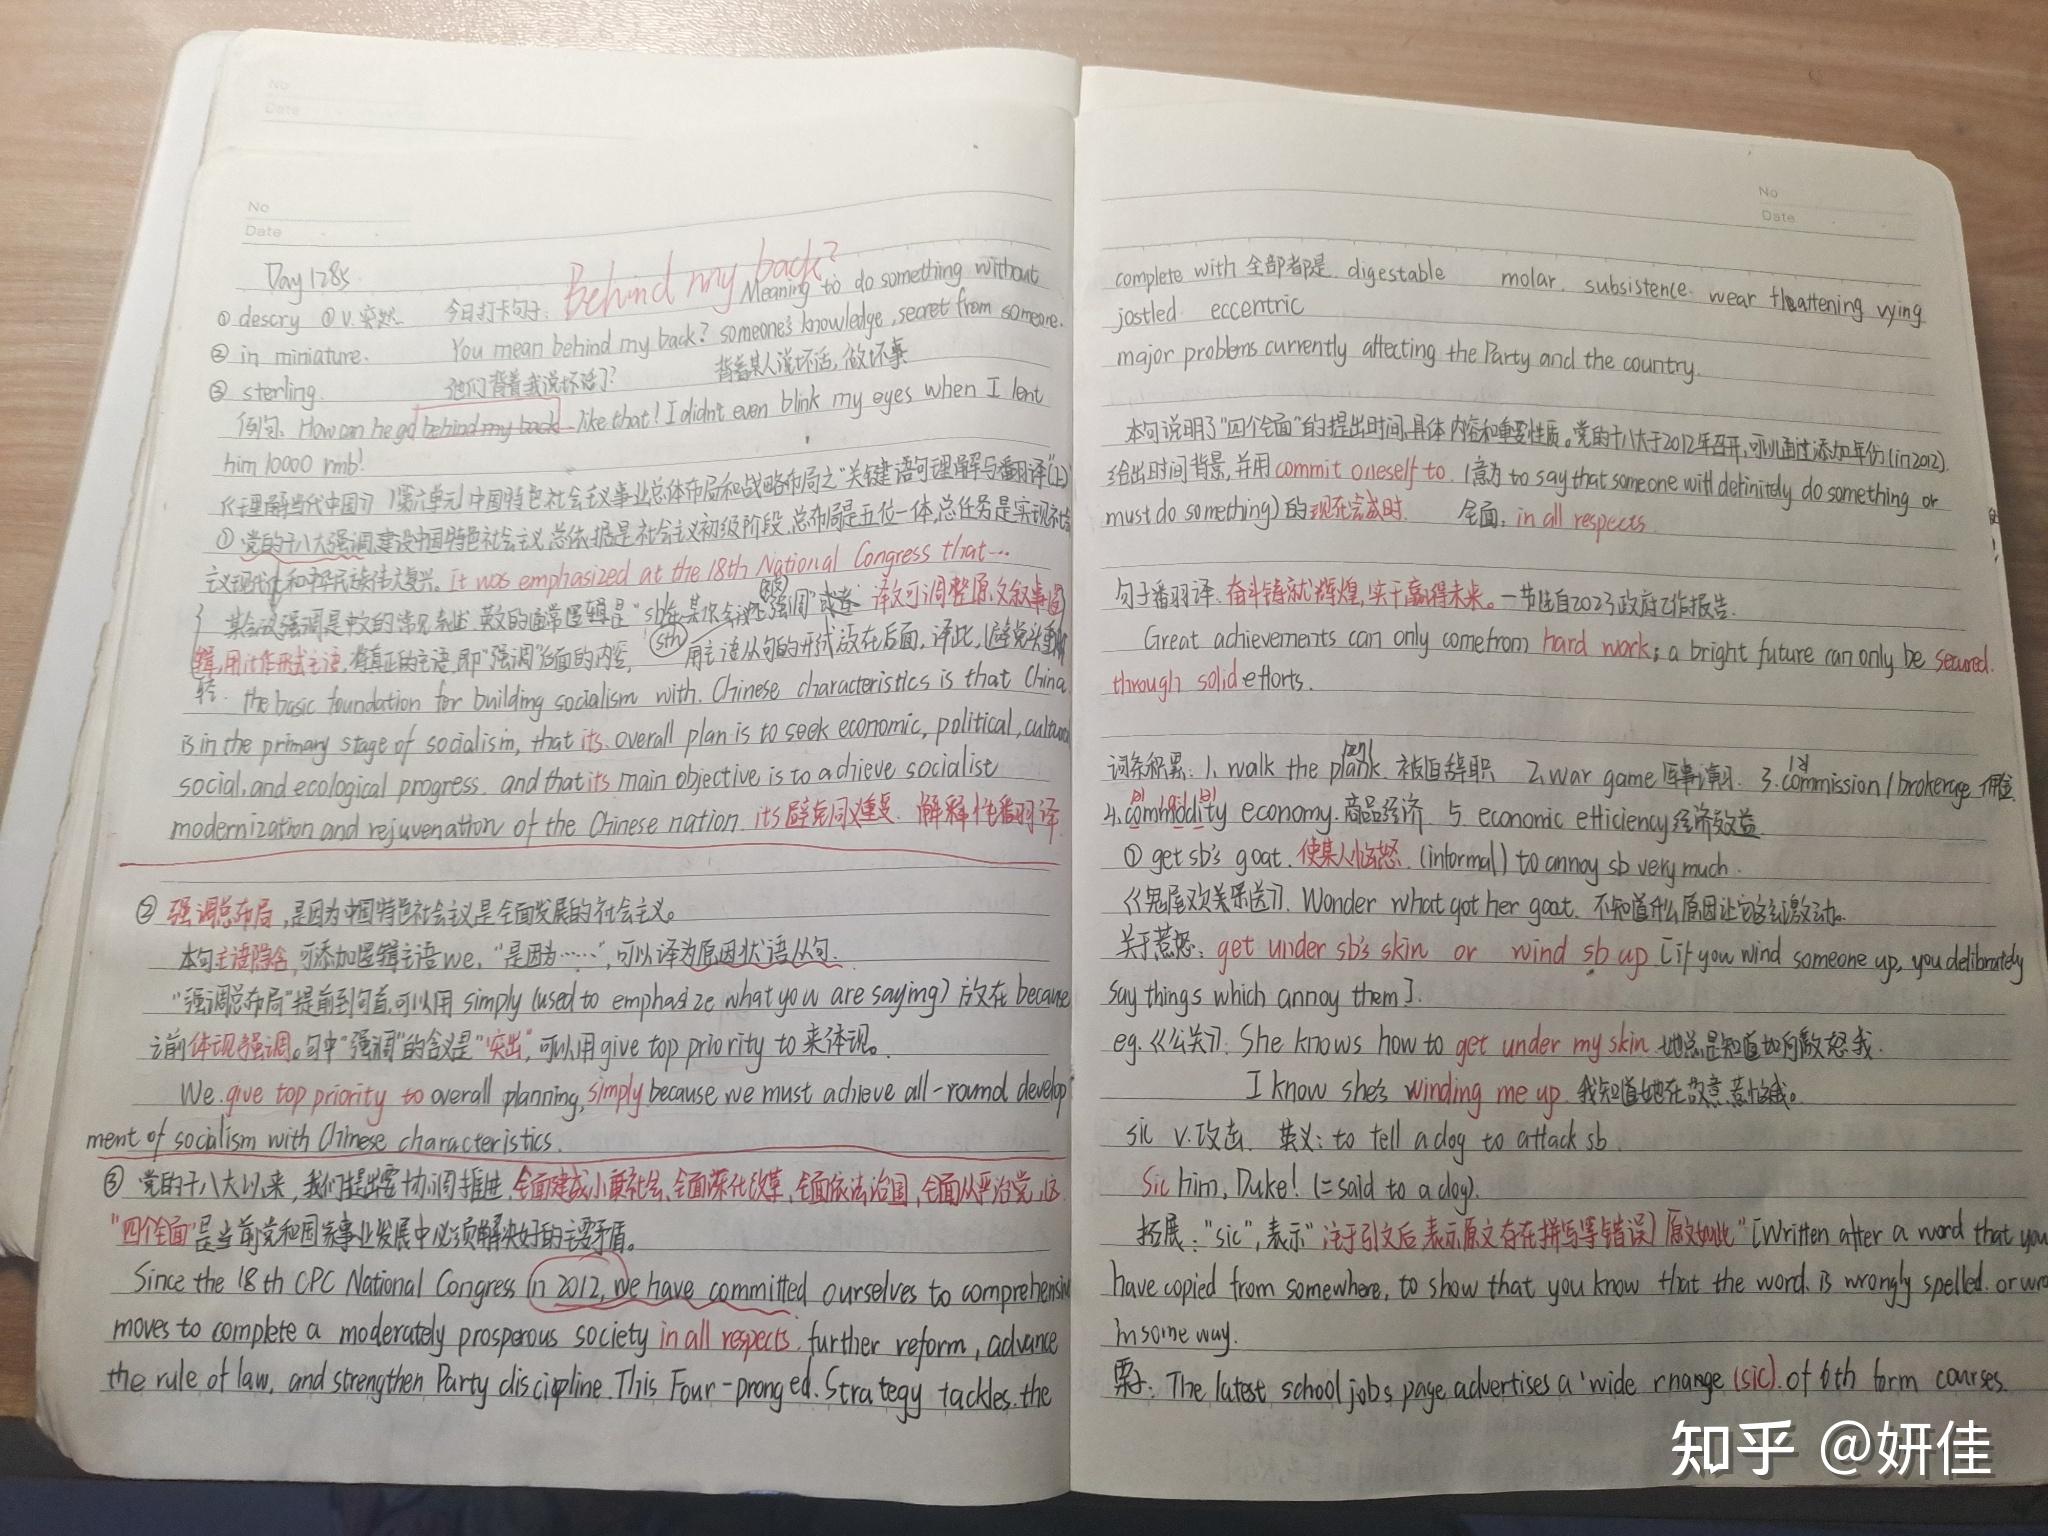 No
Date
No
Date
Day 1285
Behind my back?
① descry ① v. 突然
今日打卡句子:
Meaning to do something without
② in miniature.
You mean behind my back? someone's knowledge, secret from someone.
③ sterling.
他们背着我说坏话了?
背着某人说坏话,做坏事
例句: How can he go behind my back like that! I didn't even blink my eyes when I lent
him 10000 rmb!
《理解当代中国》(第六单元)中国特色社会主义事业总体布局和战略布局之"关键语句理解与翻译"(上)
① 党的十八大强调,建设中国特色社会主义,总依据是社会主义初级阶段,总布局是五位一体,总任务是实现社会
主义现代化和中华民族伟大复兴。It was emphasized at the 18th National Congress that...
某会议强调是中文的常见表述,英文的通常逻辑是"sb在某次会议上强调"或者 译文可调整原文叙事逻
sth
辑,用it作形式主语,将真正的主语,即"强调"后面的内容,用主语从句的形式放在后面,译此,避免头重脚
轻. the basic foundation for building socialism with Chinese characteristics is that China
is in the primary stage of socialism, that its overall plan is to seek economic, political, cultural
social, and ecological progress, and that its main objective is to achieve socialist
modernization and rejuvenation of the Chinese nation. its避免同义重复. 解释性翻译
② 强调总布局,是因为中国特色社会主义是全面发展的社会主义。
本句主语隐含,可添加逻辑主语we,"是因为……",可以译为原因状语从句.
"强调总布局"提前到句首,可以用 simply (used to emphasize what you are saying) 放在 because
之前体现强调。句中"强调"的含义是"突出",可以用 give top priority to 来体现。
We give top priority to overall planning, simply because we must achieve all-round develop
ment of socialism with Chinese characteristics.
③ 党的十八大以来,我们提出要协调推进全面建成小康社会、全面深化改革、全面依法治国、全面从严治党,这
"四个全面"是当前党和国家事业发展中必须解决好的主要矛盾。
Since the 18th CPC National Congress in 2012, we have committed ourselves to comprehensive
moves to complete a moderately prosperous society in all respects, further reform, advance
the rule of law, and strengthen Party discipline. This Four-pronged Strategy tackles the
No
Date
complete with 全部都是 digestable molar. subsistence. wear flattening vying
jostled eccentric
major problems currently affecting the Party and the country.
本句说明了"四个全面"的提出时间、具体内容和重要性质。党的十八大于2012年召开,可以通过添加年份(in 2012)
给出时间背景,并用commit oneself to (意为 to say that someone will definitely do something or
must do something) 的现在完成时. 全面, in all respects
句子翻译: 奋斗铸就辉煌,实干赢得未来。一节选自2023政府工作报告.
Great achievements can only come from hard work; a bright future can only be secured
through solid efforts.
词条积累: 1. walk the plank 被迫辞职 2. war game 军事演习 3. commission / brokerage 佣金
4. commodity economy. 商品经济 5. economic efficiency 经济效益
① get sb's goat. 使某人恼怒 (informal) to annoy sb very much.
《鬼屋欢乐送》. Wonder what got her goat. 不知道什么原因让它这么激动.
关于惹怒: get under sb's skin or wind sb up [if you wind someone up, you delibrately
say things which annoy them].
eg. 《公关》. She knows how to get under my skin 她总是知道如何激怒我.
I know she's winding me up 我知道她在故意惹恼我。
sic v. 攻击. 英义: to tell a dog to attack sb
Sic him, Duke! (= said to a dog).
拓展: "sic", 表示"注于引文后,表示原文存在拼写等错误)原文如此" [Written after a word that you
have copied from somewhere, to show that you know that the word is wrongly spelled or wro
in some way.
栗子: The latest school jobs page advertises a 'wide rnange (sic) of 6th form courses.
知乎 @妍佳